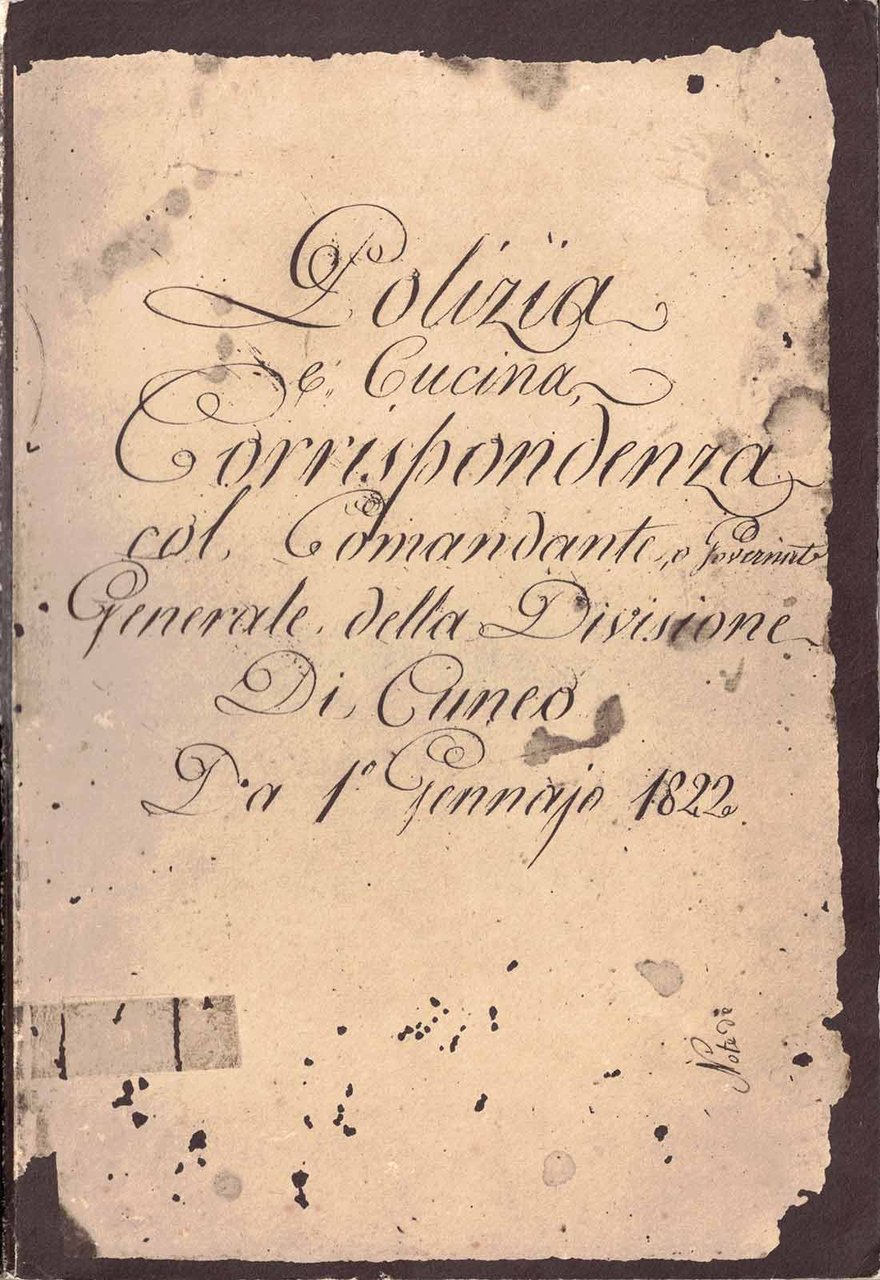 Polizia
e, Cucina,
Corrispondenza
col, Comandante, o Governat.e
Generale, della Divisione
Di, Cuneo
Da 1° Gennajo 1822
Note di